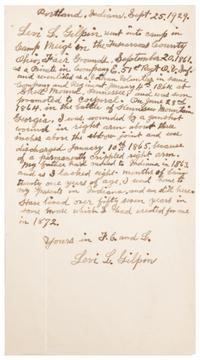 Portland, Indiana, Sept. 25, 1929.
Levi L. Gilpin went into camp in
Camp Meigs on the Tuscarawas County
Ohio, Fair Grounds September 20, 1861
as a Private in Company E, 51st Regt. O. V. Inf.
and reenlisted as a Veteran Volunteer in same
Company and Regiment, January 1st 1864, at
Shell Mound, Tennessee, and was soon
promoted to corporal. On June
1864, in the battle of Kennesaw Mountain
Georgia, I was wounded by a gunshot
wound in right arm about three
inches above the elbow joint and was
discharged January 10th 1865, because
of a permanently crippled right arm.
My father had moved to Indiana in 1863
and as I lacked eight months of being
twenty one years of age, I went home to
my Parents in Indiana, and
have lived over fifty seven years in
same house which I had erected for me
in 1872.
Yours in F. C. and L.
Levi L. Gilpin